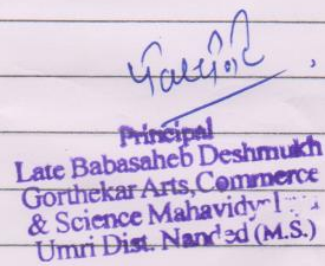 Principal
Late Babasaheb Deshmukh
Gorthekar Arts, Commerce
& Science Mahavidy
Umri Dist. Nanded (M.S.)